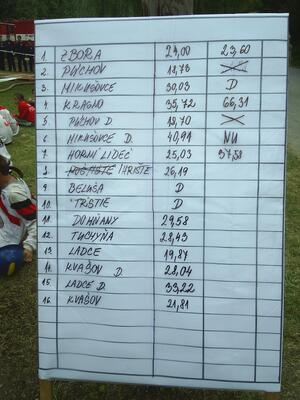 1. ZBORA 24,00 23,60
2. PÚCHOV 18,78
3. MIKUŠOVCE 30,03 D
4. KRASNO 35,72 66,31
5. PÚCHOV D 18,70
6. MIKUŠOVCE D. 40,94 NU
7. HORNÍ LIDEČ 25,03 37,58
8. IHRIŠTE 26,19
9. BELUŠA D
10. TRSTIE D
11. DOHŇANY 29,58
12. TUCHYŇA 28,43
13. LADCE 19,87
14. KVAŠOV D. 28,04
15. LADCE D. 33,22
16. KVAŠOV 21,81